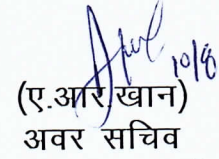 10/8
(ए.आर.खान)
अवर सचिव